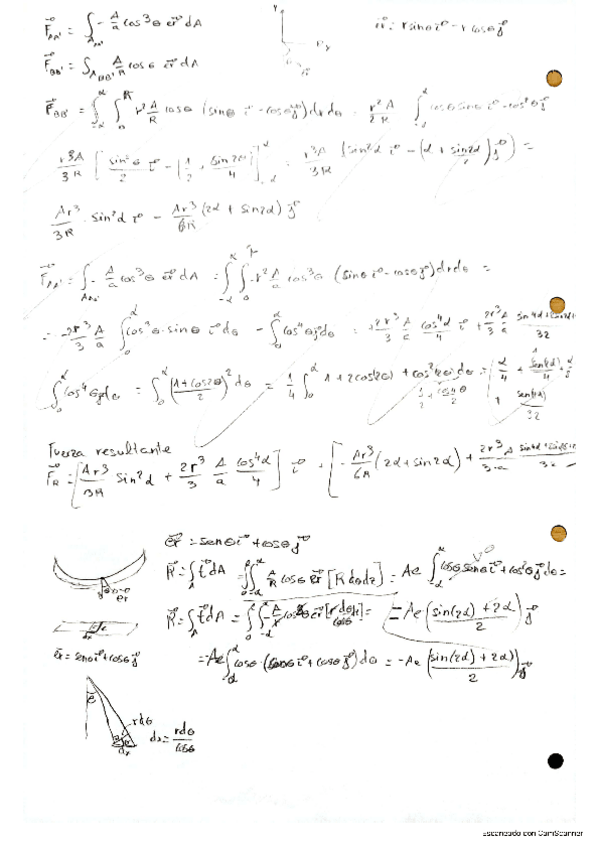 F_AA' = ∫_AAA' - A/a cos³θ er dA
Y
er = rsinθ i - r cosθ j
F_BB' = ∫_ABB' A/R cosθ er dA
F_BB' = ∫_-α^α ∫_0^R r² A/R cosθ (sinθ i - cosθ j) dr dθ = r²A/2R ∫_-α^α cosθ sinθ i - cos²θ j
r³A/3R [sin²θ/2 i - (1/2 + sin2θ/4)j]_-α^α = r³A/3R (sin²α i - (α + sin2α/2) j) =
Ar³/3R · sin²α i - Ar³/6R (2α + sin2α) j
F_AA' = ∫_AAA' - A/a cos³θ er dA = ∫_-α^α ∫_0^r -r² A/a cos³θ (sinθ i - cosθ j) dr dθ =
= -2r³/3 A/a ∫_0^α cos³θ · sinθ i dθ - ∫_0^α cos⁴θ j dθ = +2r³/3 A/a cos⁴α/4 i + 2r³/3 A/a
32
∫_0^α cos⁴θ j dθ = ∫_0^α ((1+cos2θ)/2)² dθ = 1/4 ∫_0^α 1 + 2cos2θ + cos²2θ dθ =
1/2 + cos4θ/2
32
Fuerza resultante
F_R = [Ar³/3R sin²α + 2r³/3 A/a cos⁴α/4] i + [- Ar³/6R (2α + sin2α) + 2r³/3·a A
er = senθ i + cosθ j
R = ∫_A t dA = ∫_0^e ∫_-α^α A/R cosθ er [R dθ dz] = Ae ∫_-α^α cosθ senθ i + cos²θ j dθ =
er
R = ∫_A t dA
= Ae (sin(2α) + 2α / 2) j
er = senθ i + cosθ j
= -Ae ∫_-α^α cosθ · (senθ i + cosθ j) dθ = -Ae (sin(2α) + 2α / 2) j
θ
rdθ
dx = rdθ/cosθ
Escaneado con CamScanner